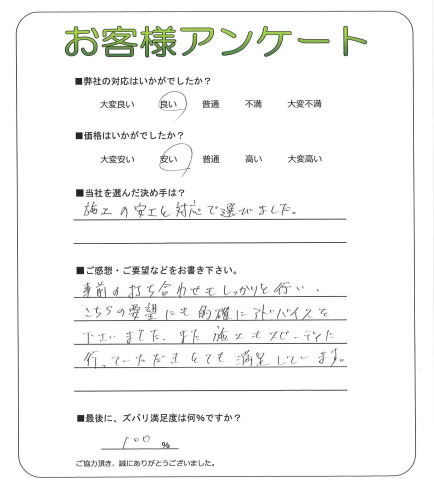 お客様アンケート
■弊社の対応はいかがでしたか?
大変良い 良い 普通 不満 大変不満
■価格はいかがでしたか?
大変安い 安い 普通 高い 大変高い
■当社を選んだ決め手は?
施工の安さと対応で選びました。
■ご感想・ご要望などをお書き下さい。
事前の打ち合わせもしっかりと行い、
こちらの要望にも的確にアドバイスを
下さいました。また施工もスピーディに
行っていただきとても満足しています。
■最後に、ズバリ満足度は何%ですか?
100 %
ご協力頂き、誠にありがとうございました。